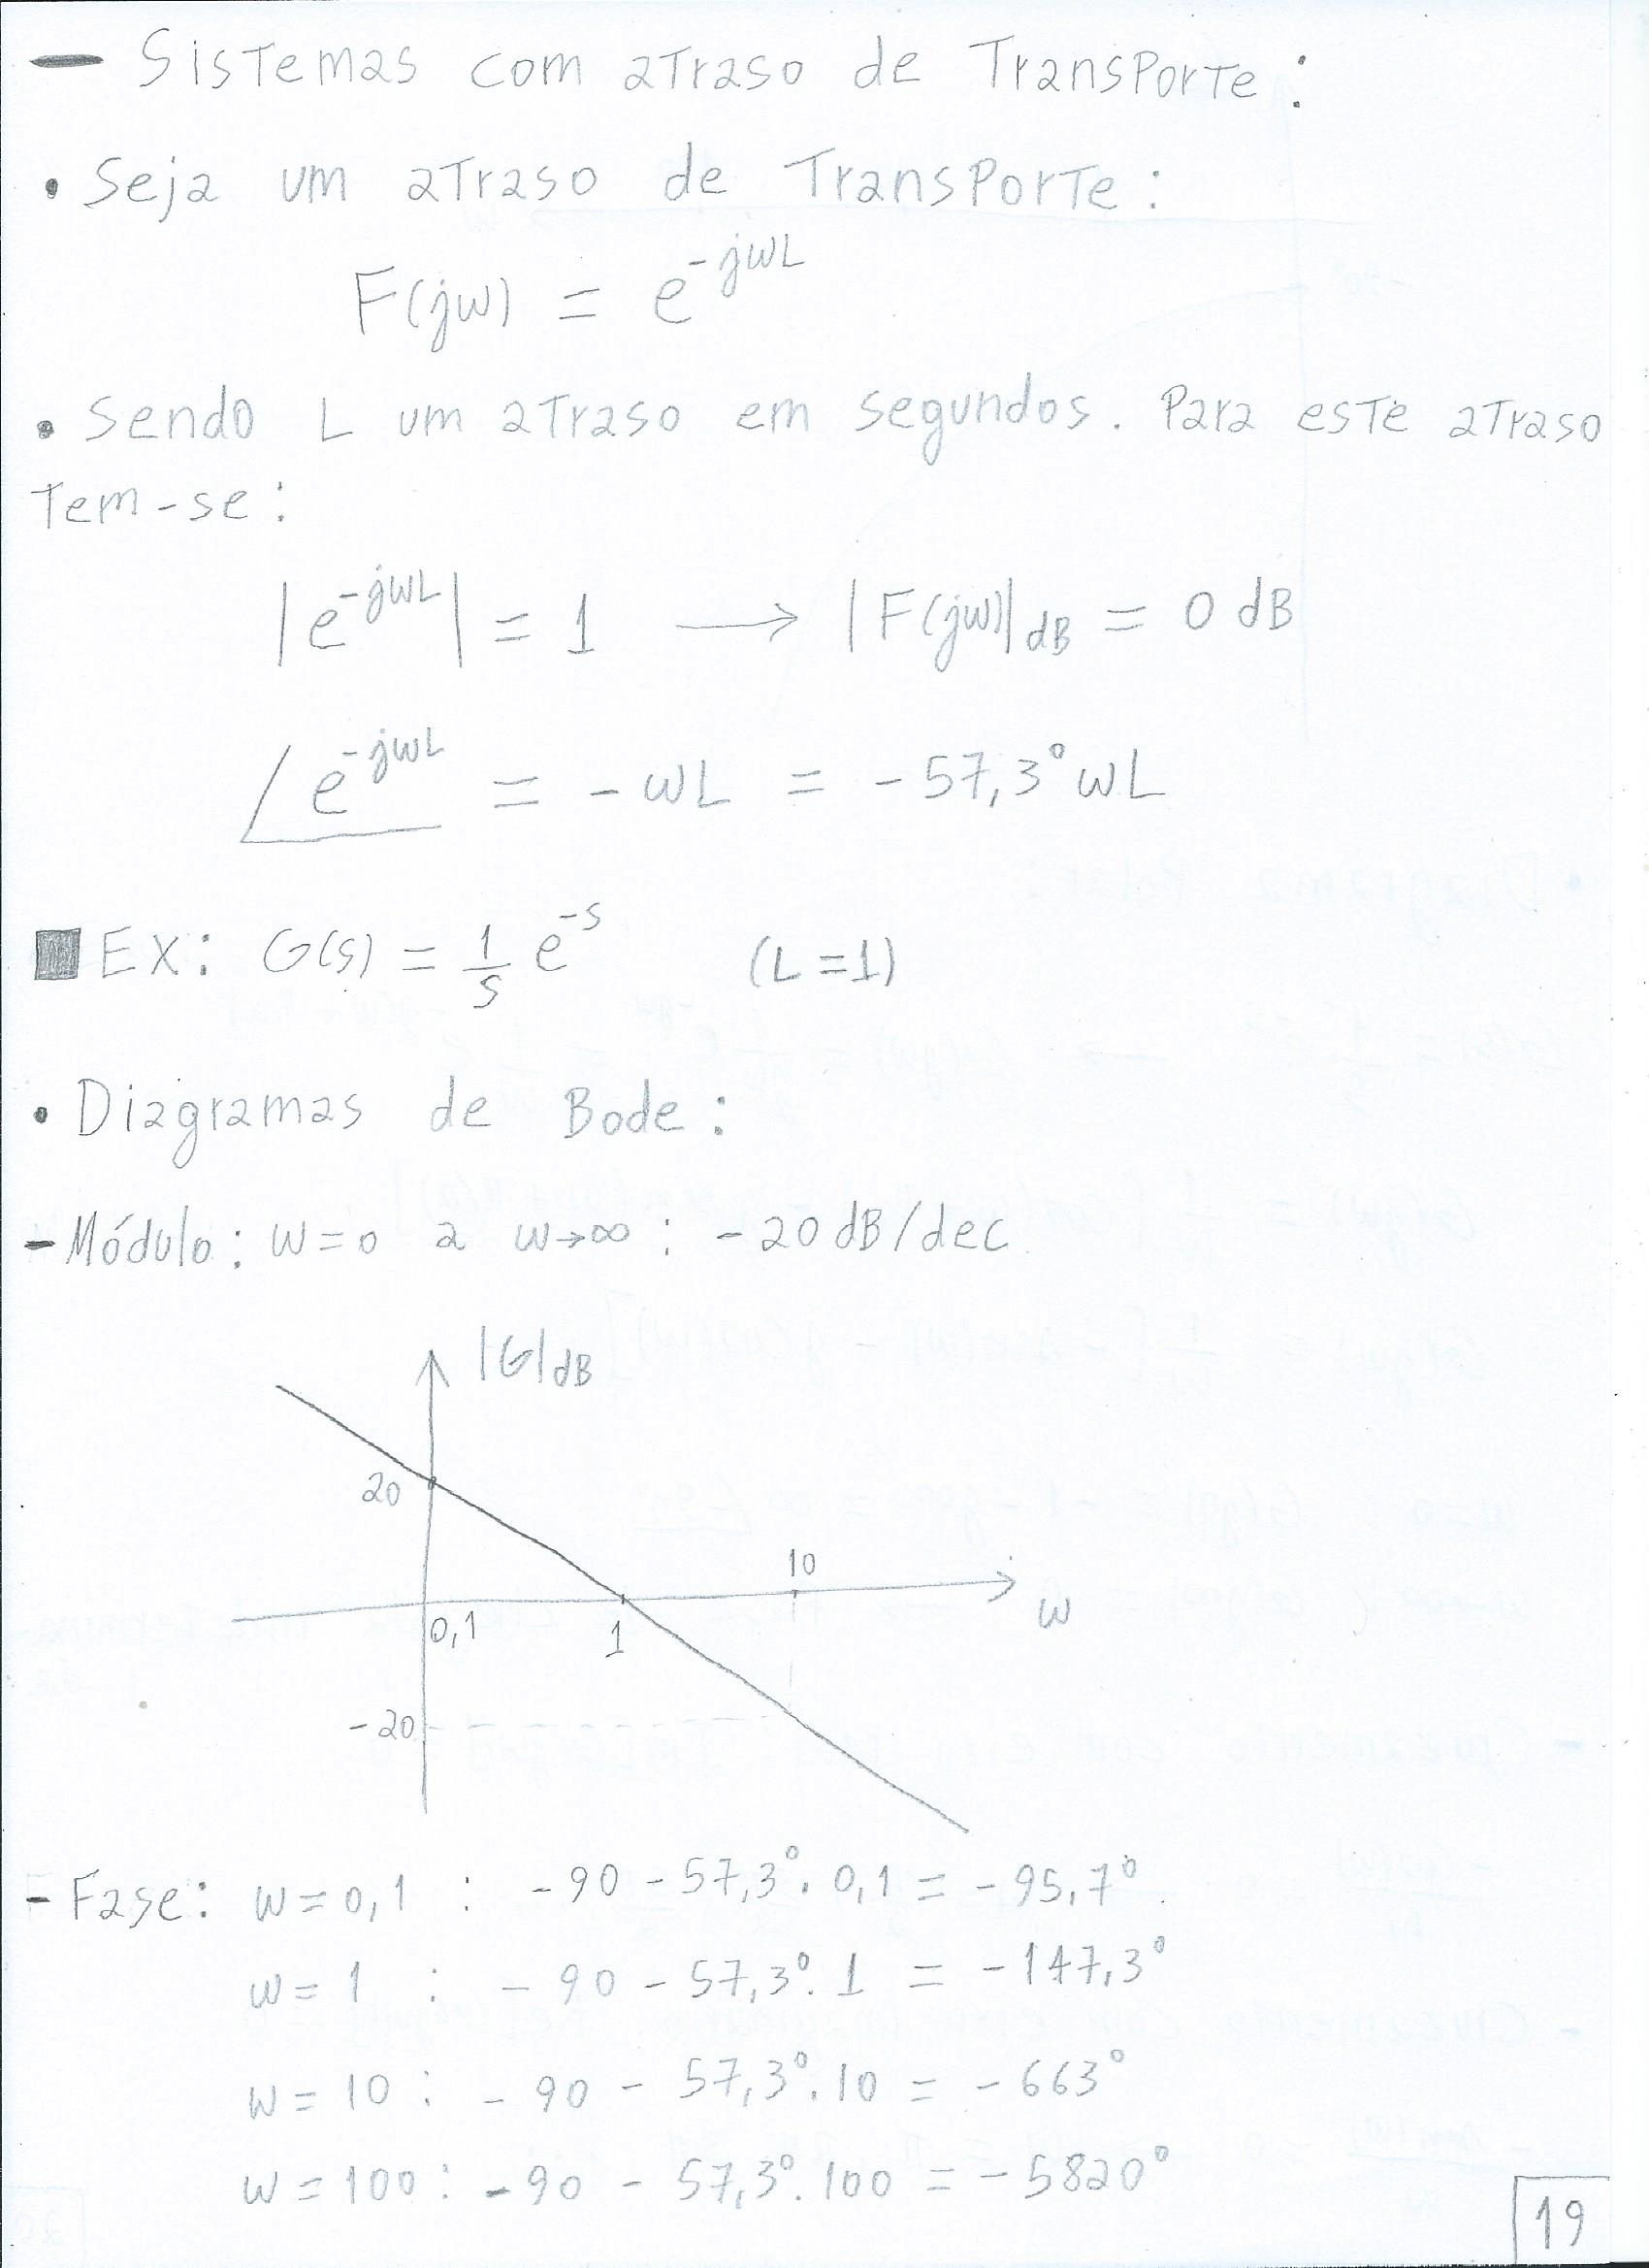 — Sistemas com atraso de Transporte:
• Seja um atraso de Transporte:
F(jw) = e^{-jwL}
• Sendo L um atraso em segundos. Para este atraso
tem-se:
|e^{-jwL}| = 1 → |F(jw)|_{dB} = 0 dB
∠e^{-jwL} = -wL = -57,3° wL
■ EX: G(s) = 1/s e^{-s} (L=1)
• Diagramas de Bode:
- Módulo: w=0 a w→∞ : -20 dB/dec
|G|_{dB}
20
10
w
0,1
1
-20
- Fase: w=0,1 : -90 - 57,3°. 0,1 = -95,7°
w=1 : -90 - 57,3°. 1 = -147,3°
w=10 : -90 - 57,3°. 10 = -663°
w=100 : -90 - 57,3°. 100 = -5820°
19